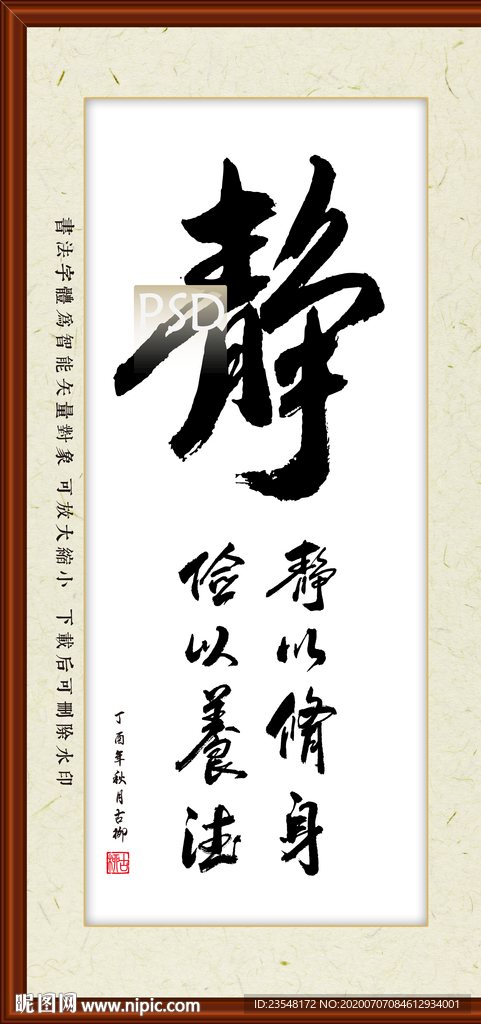 静
PSD
静以脩身
俭以養德
丁酉年秋月古柳
書法字體為智能矢量對象 可放大縮小 下載后可刪除水印
昵图网 www.nipic.com
ID:23548172 NO:20200707084612934001